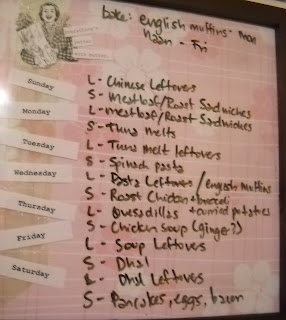 bake: english muffins - mon
naan - Fri
everything's
better
with butter.
Sunday
L - Chinese Leftovers
S - Meatloaf/Roast Sandwiches
Monday
L - meatloaf/Roast Sandwiches
S - Tuna melts
Tuesday
L - Tuna melt leftovers
S - Spinach pasta
Wednesday
L - Pasta Leftovers / english muffins
S - Roast Chicken + broccoli
Thursday
L - Quesadillas + curried potatoes
S - Chicken Soup (ginger?)
Friday
L - Soup Leftovers
S - Dhal
Saturday
L - Dhal Leftovers
S - Pancakes, eggs, bacon